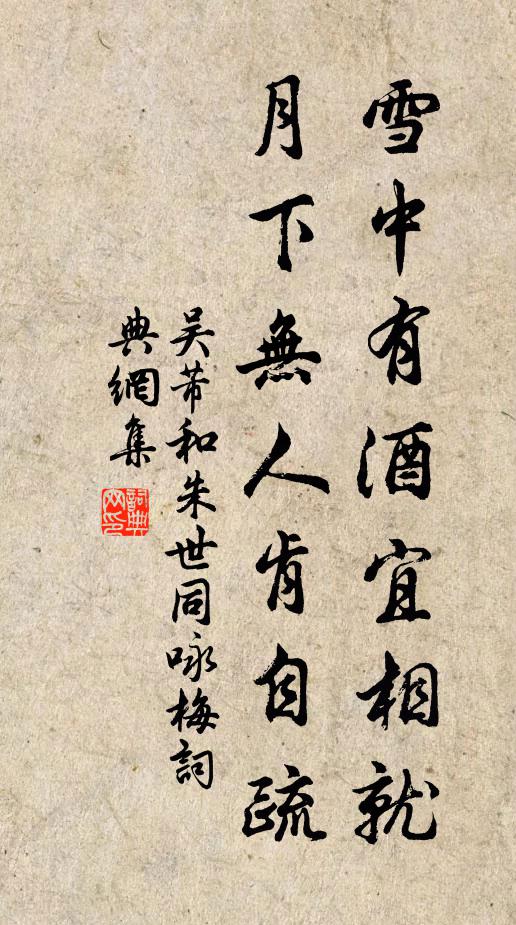 雪中有酒宜相就
月下無人肯自疏
吳芾和朱世同咏梅詞
典網集
詞典
网印